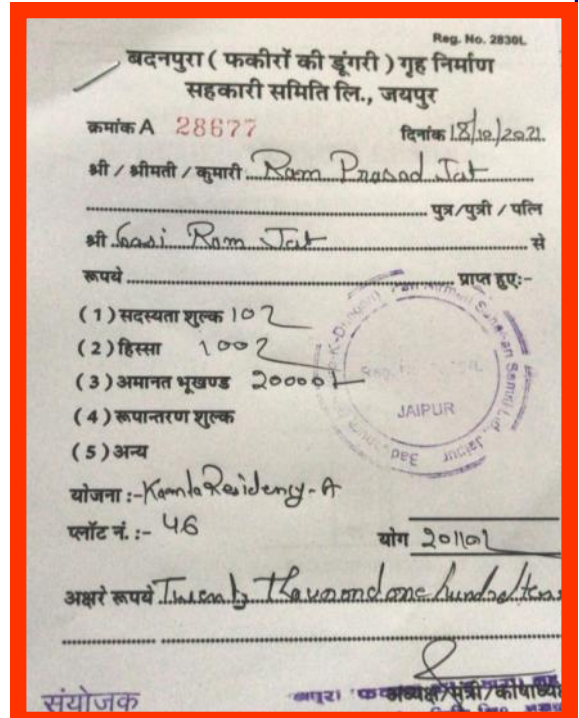 Reg. No. 2830L
बदनपुरा ( फकीरों की डूंगरी ) गृह निर्माण
सहकारी समिति लि., जयपुर
क्रमांक A 28677 दिनांक 18/10/2021
श्री / श्रीमती / कुमारी Ram Prasad Jat
पुत्र/पुत्री / पत्नि
श्री Gasi Ram Jat से
रूपये प्राप्त हुए:-
( 1 ) सदस्यता शुल्क 10
( 2 ) हिस्सा 100
( 3 ) अमानत भूखण्ड 20000
( 4 ) रूपान्तरण शुल्क
( 5 ) अन्य
JAIPUR
योजना :- Kamla Residency - A
प्लॉट नं. :- 46 योग
अक्षरे रूपये Twenty Thousand one hundred
अध्यक्ष/मंत्री/कोषाध्यक्ष
संयोजक